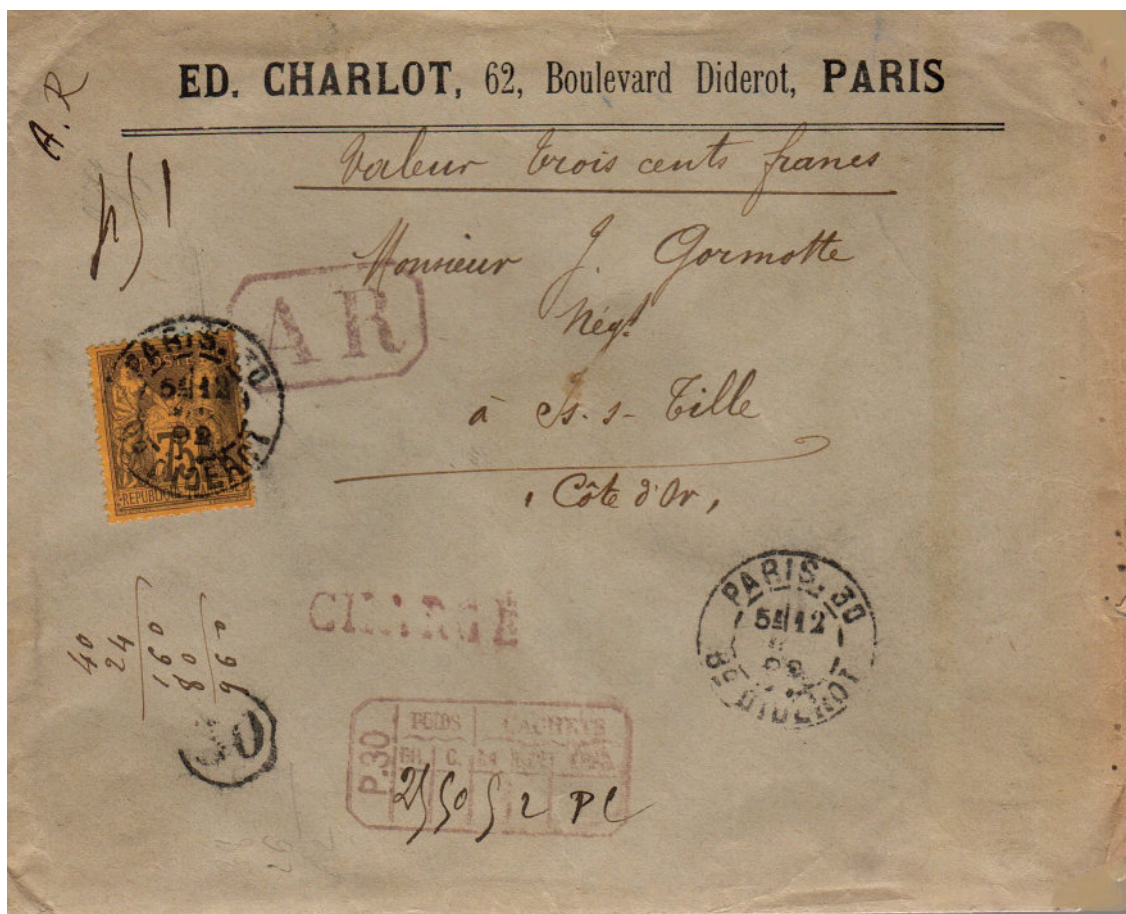 ED. CHARLOT, 62, Boulevard Diderot, PARIS
A.R
Valeur trois cents francs
Monsieur J. Gormotte
Négt
à Is-s-Tille
(Côte d'Or)
A R
PARIS. 30
5E 12
92
Bd DIDEROT
75
REPUBLIQUE
CHARGÉ
PARIS. 30
5E 12
Bd DIDEROT
40
24
160
80
960
30
P.30
POIDS CACHETS
C.